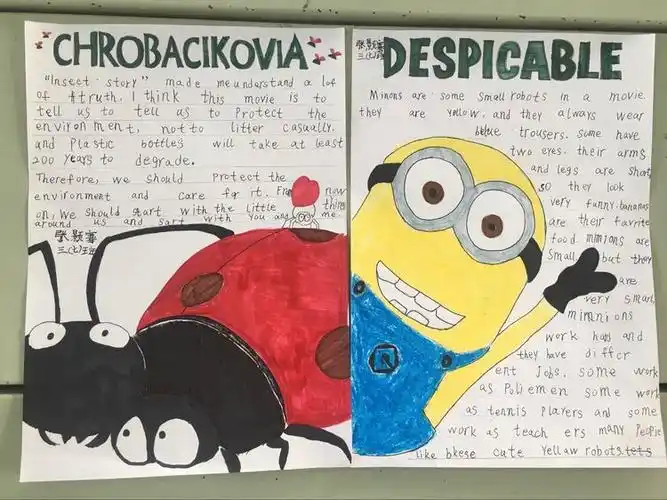 CHROBACIKOVIA
"Insect story" made me understand a lot
of truth. I think this movie is to
tell us to tell as to Protect the
environment, not to litter casually,
and Plastic bottles will take at least
200 years to degrade.
Therefore, we should Protect the
environment and care for it. From now
on, we should start with the little things
around us and sart with you and me.
三(七)班
DESPICABLE
三(七)
Minons are some small robots in a movie.
they are yellow. and they always wear
blue trousers. some have
two eyes. their arms
and legs are short
so they look
very funny. bananas
are their favrite
food minions are
small but they
are
very smart
minanions
work hard and
they have differ
ent Jobs. some work
as Poliemen some work
as tennis Players and some
work as teach ers many People
like bkese cute yellaw robots.